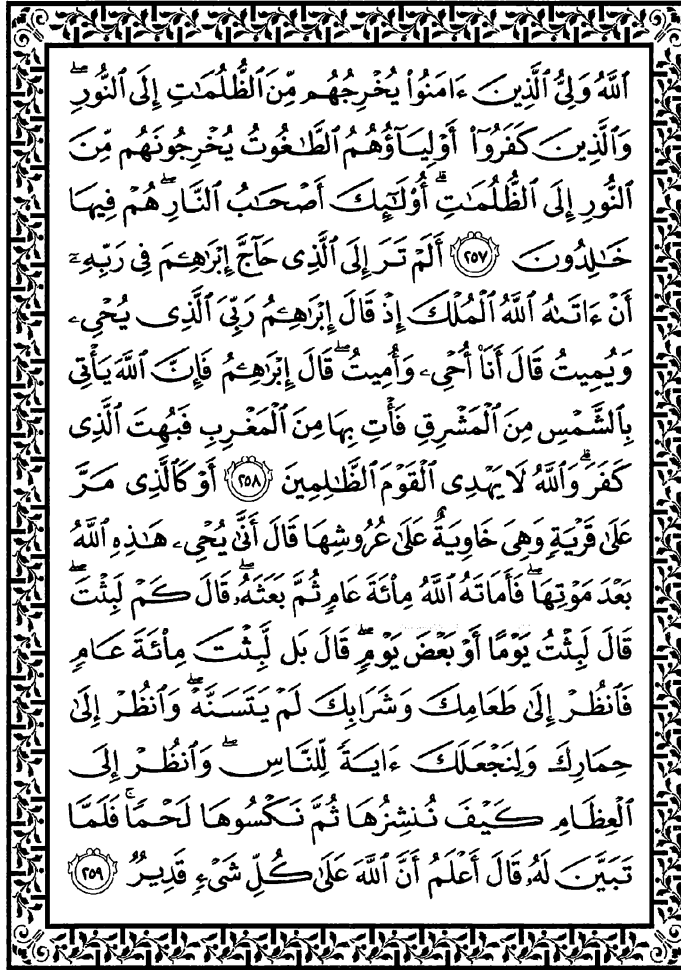 ٱللَّهُ وَلِىُّ ٱلَّذِينَ ءَامَنُوا۟ يُخْرِجُهُم مِّنَ ٱلظُّلُمَـٰتِ إِلَى ٱلنُّورِ ۖ
وَٱلَّذِينَ كَفَرُوٓا۟ أَوْلِيَآؤُهُمُ ٱلطَّـٰغُوتُ يُخْرِجُونَهُم مِّنَ
ٱلنُّورِ إِلَى ٱلظُّلُمَـٰتِ ۗ أُو۟لَـٰٓئِكَ أَصْحَـٰبُ ٱلنَّارِ ۖ هُمْ فِيهَا
خَـٰلِدُونَ ٢٥٧ أَلَمْ تَرَ إِلَى ٱلَّذِى حَآجَّ إِبْرَٰهِـۧمَ فِى رَبِّهِۦٓ
أَنْ ءَاتَىٰهُ ٱللَّهُ ٱلْمُلْكَ إِذْ قَالَ إِبْرَٰهِـۧمُ رَبِّىَ ٱلَّذِى يُحْىِۦ
وَيُمِيتُ قَالَ أَنَا۠ أُحْىِۦ وَأُمِيتُ ۖ قَالَ إِبْرَٰهِـۧمُ فَإِنَّ ٱللَّهَ يَأْتِى
بِٱلشَّمْسِ مِنَ ٱلْمَشْرِقِ فَأْتِ بِهَا مِنَ ٱلْمَغْرِبِ فَبُهِتَ ٱلَّذِى
كَفَرَ ۗ وَٱللَّهُ لَا يَهْدِى ٱلْقَوْمَ ٱلظَّـٰلِمِينَ ٢٥٨ أَوْ كَٱلَّذِى مَرَّ
عَلَىٰ قَرْيَةٍ وَهِىَ خَاوِيَةٌ عَلَىٰ عُرُوشِهَا قَالَ أَنَّىٰ يُحْىِۦ هَـٰذِهِ ٱللَّهُ
بَعْدَ مَوْتِهَا ۖ فَأَمَاتَهُ ٱللَّهُ مِا۟ئَةَ عَامٍ ثُمَّ بَعَثَهُۥ ۖ قَالَ كَمْ لَبِثْتَ ۖ
قَالَ لَبِثْتُ يَوْمًا أَوْ بَعْضَ يَوْمٍ ۖ قَالَ بَل لَّبِثْتَ مِا۟ئَةَ عَامٍ
فَٱنظُرْ إِلَىٰ طَعَامِكَ وَشَرَابِكَ لَمْ يَتَسَنَّهْ ۖ وَٱنظُرْ إِلَىٰ
حِمَارِكَ وَلِنَجْعَلَكَ ءَايَةً لِّلنَّاسِ ۖ وَٱنظُرْ إِلَى
ٱلْعِظَامِ كَيْفَ نُنشِزُهَا ثُمَّ نَكْسُوهَا لَحْمًا ۚ فَلَمَّا
تَبَيَّنَ لَهُۥ قَالَ أَعْلَمُ أَنَّ ٱللَّهَ عَلَىٰ كُلِّ شَىْءٍ قَدِيرٌ ٢٥٩